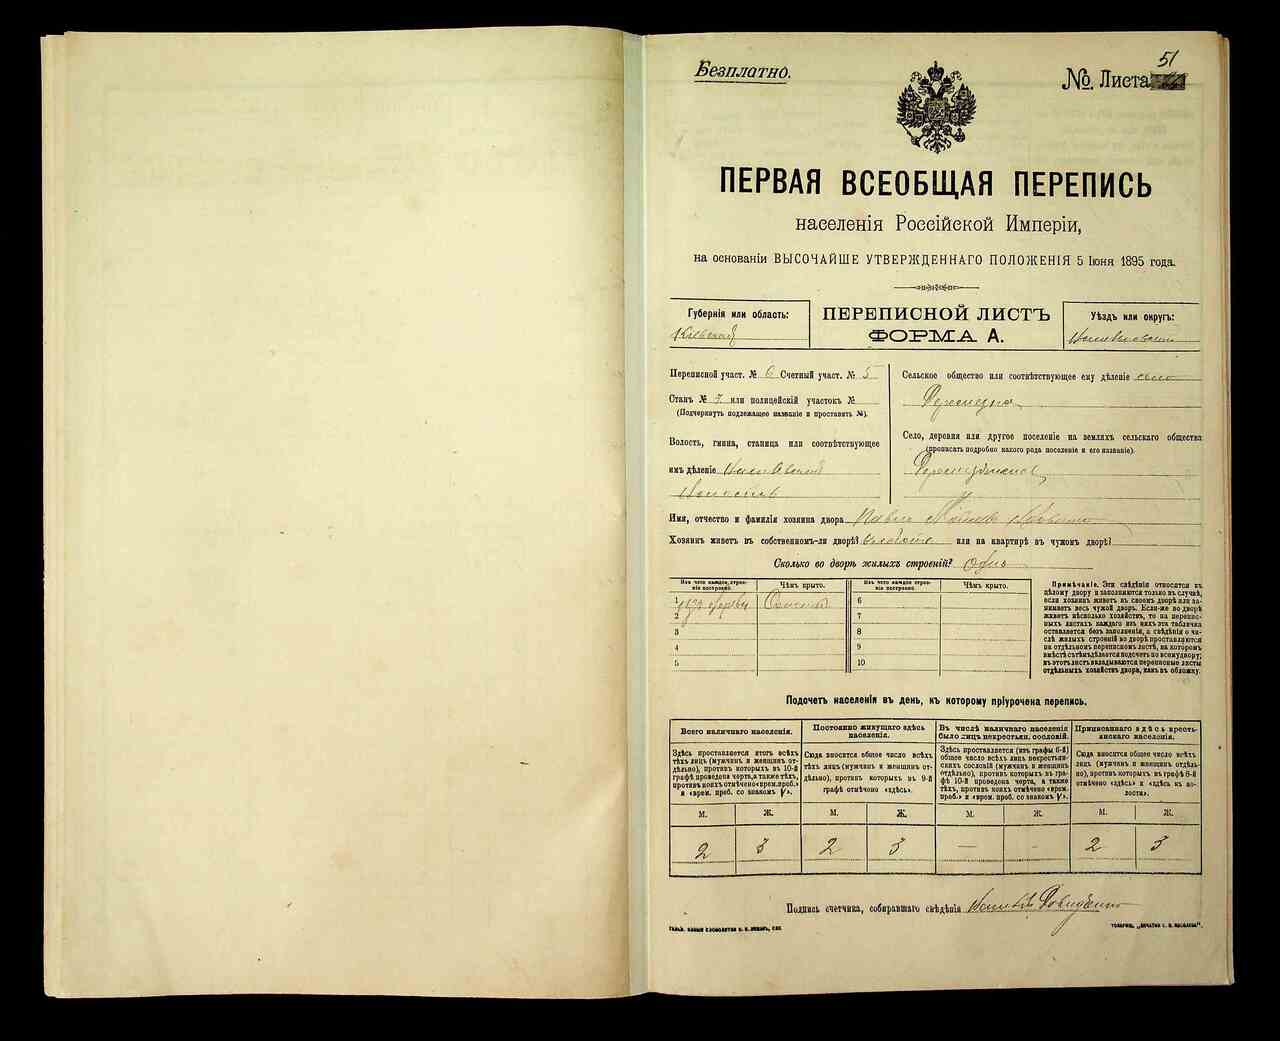 Безплатно.
51
№. Листа
ПЕРВАЯ ВСЕОБЩАЯ ПЕРЕПИСЬ
населенія Россійской Имперіи,
на основаніи ВЫСОЧАЙШЕ УТВЕРЖДЕННАГО ПОЛОЖЕНІЯ 5 Іюня 1895 года.
Губернія или область:
Кіевская
ПЕРЕПИСНОЙ ЛИСТЪ
ФОРМА А.
Уѣздъ или округъ:
Переписной участ. № 6 Счетный участ. № 5
Станъ № или полицейскій участокъ №
(Подчеркнуть подлежащее названіе и проставить №).
Волость, гмина, станица или соотвѣтствующее
имъ дѣленіе
Сельское общество или соотвѣтствующее ему дѣленіе село
Село, деревня или другое поселеніе на земляхъ сельскаго общества
(прописать подробно какого рода поселеніе и его названіе).
Имя, отчество и фамилія хозяина двора
Хозяинъ живетъ въ собственномъ-ли дворѣ? или на квартирѣ въ чужомъ дворѣ?
Сколько во дворѣ жилыхъ строеній?
Изъ чего каждое строе-
ніе построено.
Чѣмъ крыто.
1
2
3
4
5
Изъ чего каждое строе-
ніе построено.
Чѣмъ крыто.
6
7
8
9
10
Примѣчаніе. Эти свѣдѣнія относятся къ
цѣлому двору и заполняются только въ случаѣ,
если хозяинъ живетъ въ своемъ дворѣ или за-
нимаетъ весь чужой дворъ. Если-же во дворѣ
живетъ нѣсколько хозяйствъ, то на перепис-
ныхъ листахъ каждаго изъ нихъ эта табличка
оставляется безъ заполненія, а свѣдѣнія о чи-
слѣ жилыхъ строеній во дворѣ проставляются
на отдѣльномъ переписномъ листѣ, на которомъ
вмѣстѣ съ тѣмъ дѣлается подсчетъ по всему двору;
въ этотъ листъ вкладываются переписные листы
отдѣльныхъ хозяйствъ двора, какъ въ обложку.
Подсчетъ населенія въ день, къ которому пріурочена перепись.
Всего наличнаго населенія.
Здѣсь проставляется итогъ всѣхъ
тѣхъ лицъ (мужчинъ и женщинъ от-
дѣльно), противъ которыхъ въ 10-й
графѣ проведена черта, а также тѣхъ,
противъ коихъ отмѣчено «врем. проб.»
и «врем. преб. со знакомъ V».
Постоянно живущаго здѣсь
населенія.
Сюда вносится общее число всѣхъ
тѣхъ лицъ (мужчинъ и женщинъ от-
дѣльно), противъ которыхъ въ 9-й
графѣ отмѣчено «здѣсь».
Въ числѣ наличнаго населенія
было лицъ некрестьян. сословій.
Здѣсь проставляется (изъ графы 6-й)
общее число всѣхъ лицъ некрестьян-
скихъ сословій (мужчинъ и женщинъ
отдѣльно), противъ которыхъ въ гра-
фѣ 10-й проведена черта, а также
тѣхъ, противъ коихъ отмѣчено «врем.
проб.» и «врем. преб. со знакомъ V».
Приписаннаго здѣсь кресть-
янскаго населенія.
Сюда вносится общее число всѣхъ
лицъ (мужчинъ и женщинъ отдѣль-
но), противъ которыхъ въ графѣ 8-й
отмѣчено «здѣсь» и «здѣсь въ во-
лости».
М. Ж. М. Ж. М. Ж. М. Ж.
2 3 2 3 — — 2 3
Подпись счетчика, собиравшаго свѣдѣнія